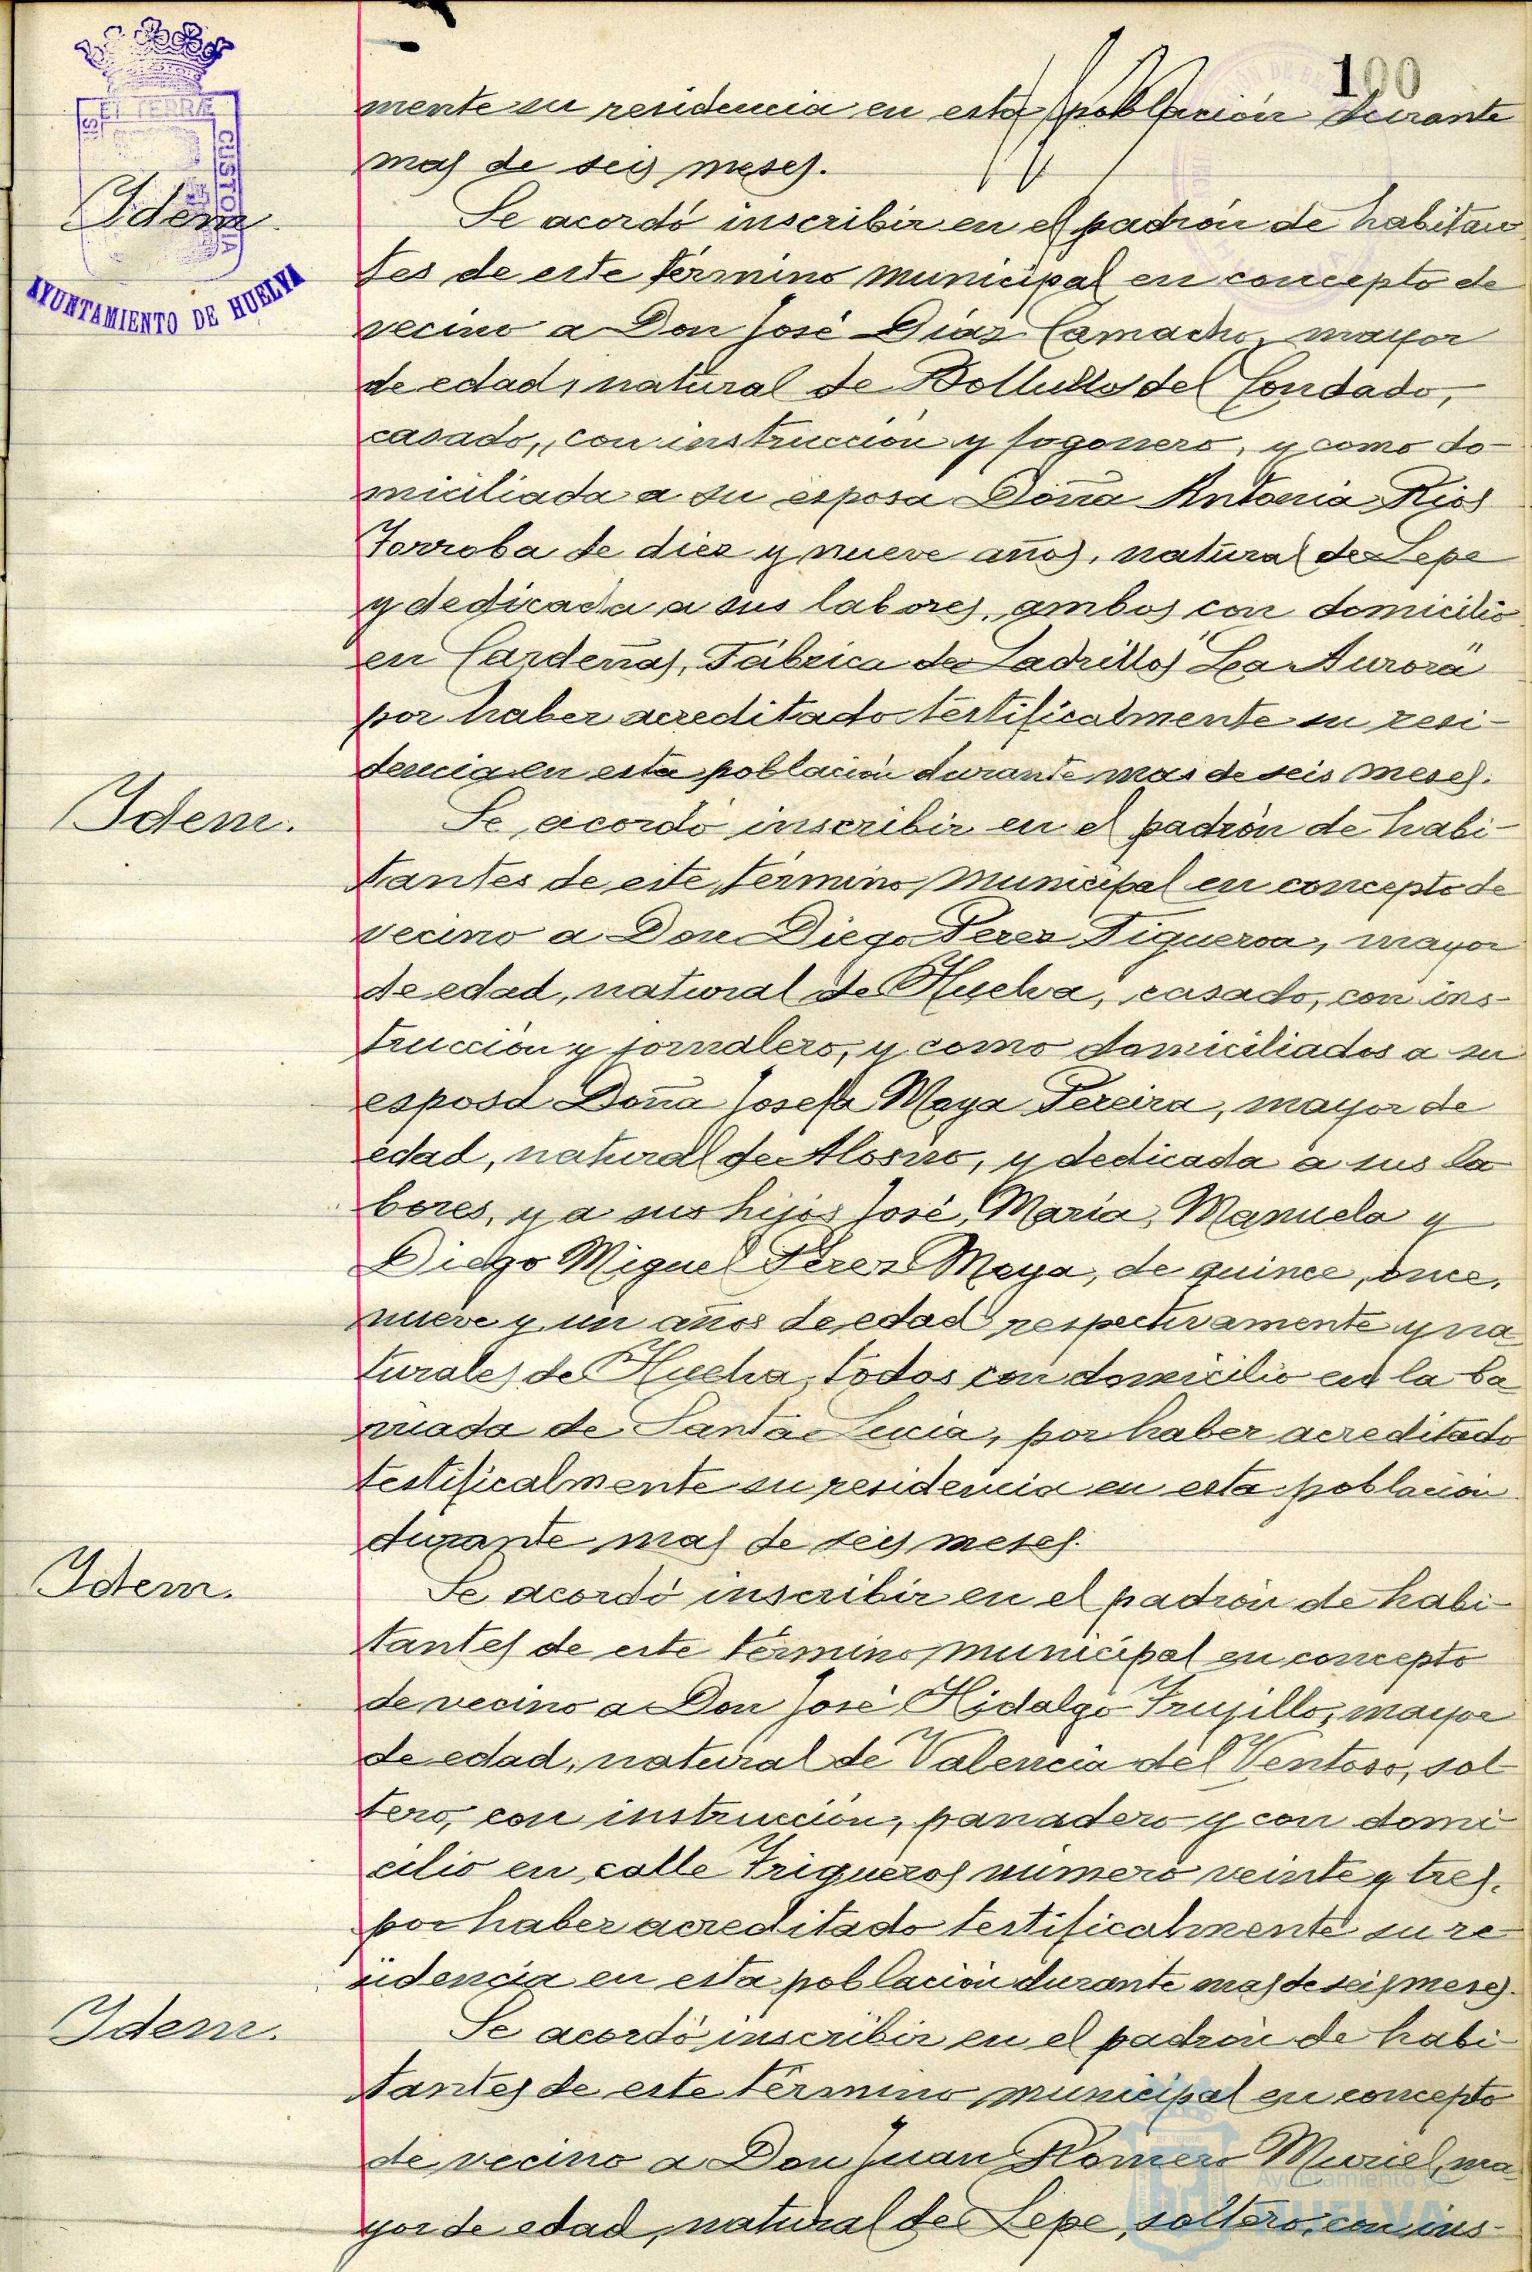 100
mente su residencia en esta población durante
mas de seis meses.
Idem.
Se acordó inscribir en el padrón de habitan
tes de este término municipal en concepto de
AYUNTAMIENTO DE HUELVA
vecino a Don José Díaz Camacho, mayor
de edad, natural de Bollullos del Condado,
casado, con instrucción y fogonero, y como do-
miciliada a su esposa Doña Antonia Rios
Torroba de diez y nueve años, natural de Lepe
y dedicada a sus labores, ambos con domicilio
en Cardeñas, Fábrica de Ladrillos "La Aurora"
por haber acreditado testificalmente su resi-
dencia en esta población durante mas de seis meses.
Idem.
Se acordó inscribir en el padrón de habi-
tantes de este término municipal en concepto de
vecino a Don Diego Perez Figueroa, mayor
de edad, natural de Huelva, casado, con ins-
trucción y jornalero, y como domiciliados a su
esposa Doña Josefa Maya Pereira, mayor de
edad, natural de Alosno, y dedicada a sus la
bores, y a sus hijos José, María, Manuela y
Diego Miguel Perez Maya, de quince, once,
nueve y un años de edad respectivamente y na
turales de Huelva, todos con domicilio en la ba
rriada de Santa Lucia, por haber acreditado
testificalmente su residencia en esta población
durante mas de seis meses.
Idem.
Se acordó inscribir en el padrón de habi-
tantes de este término municipal en concepto
de vecino a Don José Hidalgo Trujillo, mayor
de edad, natural de Valencia del Ventoso, sol
tero, con instrucción, panadero y con domi
cilio en calle Trigueros número veinte y tres,
por haber acreditado testificalmente su re-
sidencia en esta población durante mas de seis meses.
Idem.
Se acordó inscribir en el padrón de habi-
tantes de este término municipal en concepto
de vecino a Don Juan Romero Muriel, ma
yor de edad, natural de Lepe, soltero, con ins-
Ayuntamiento de
HUELVA